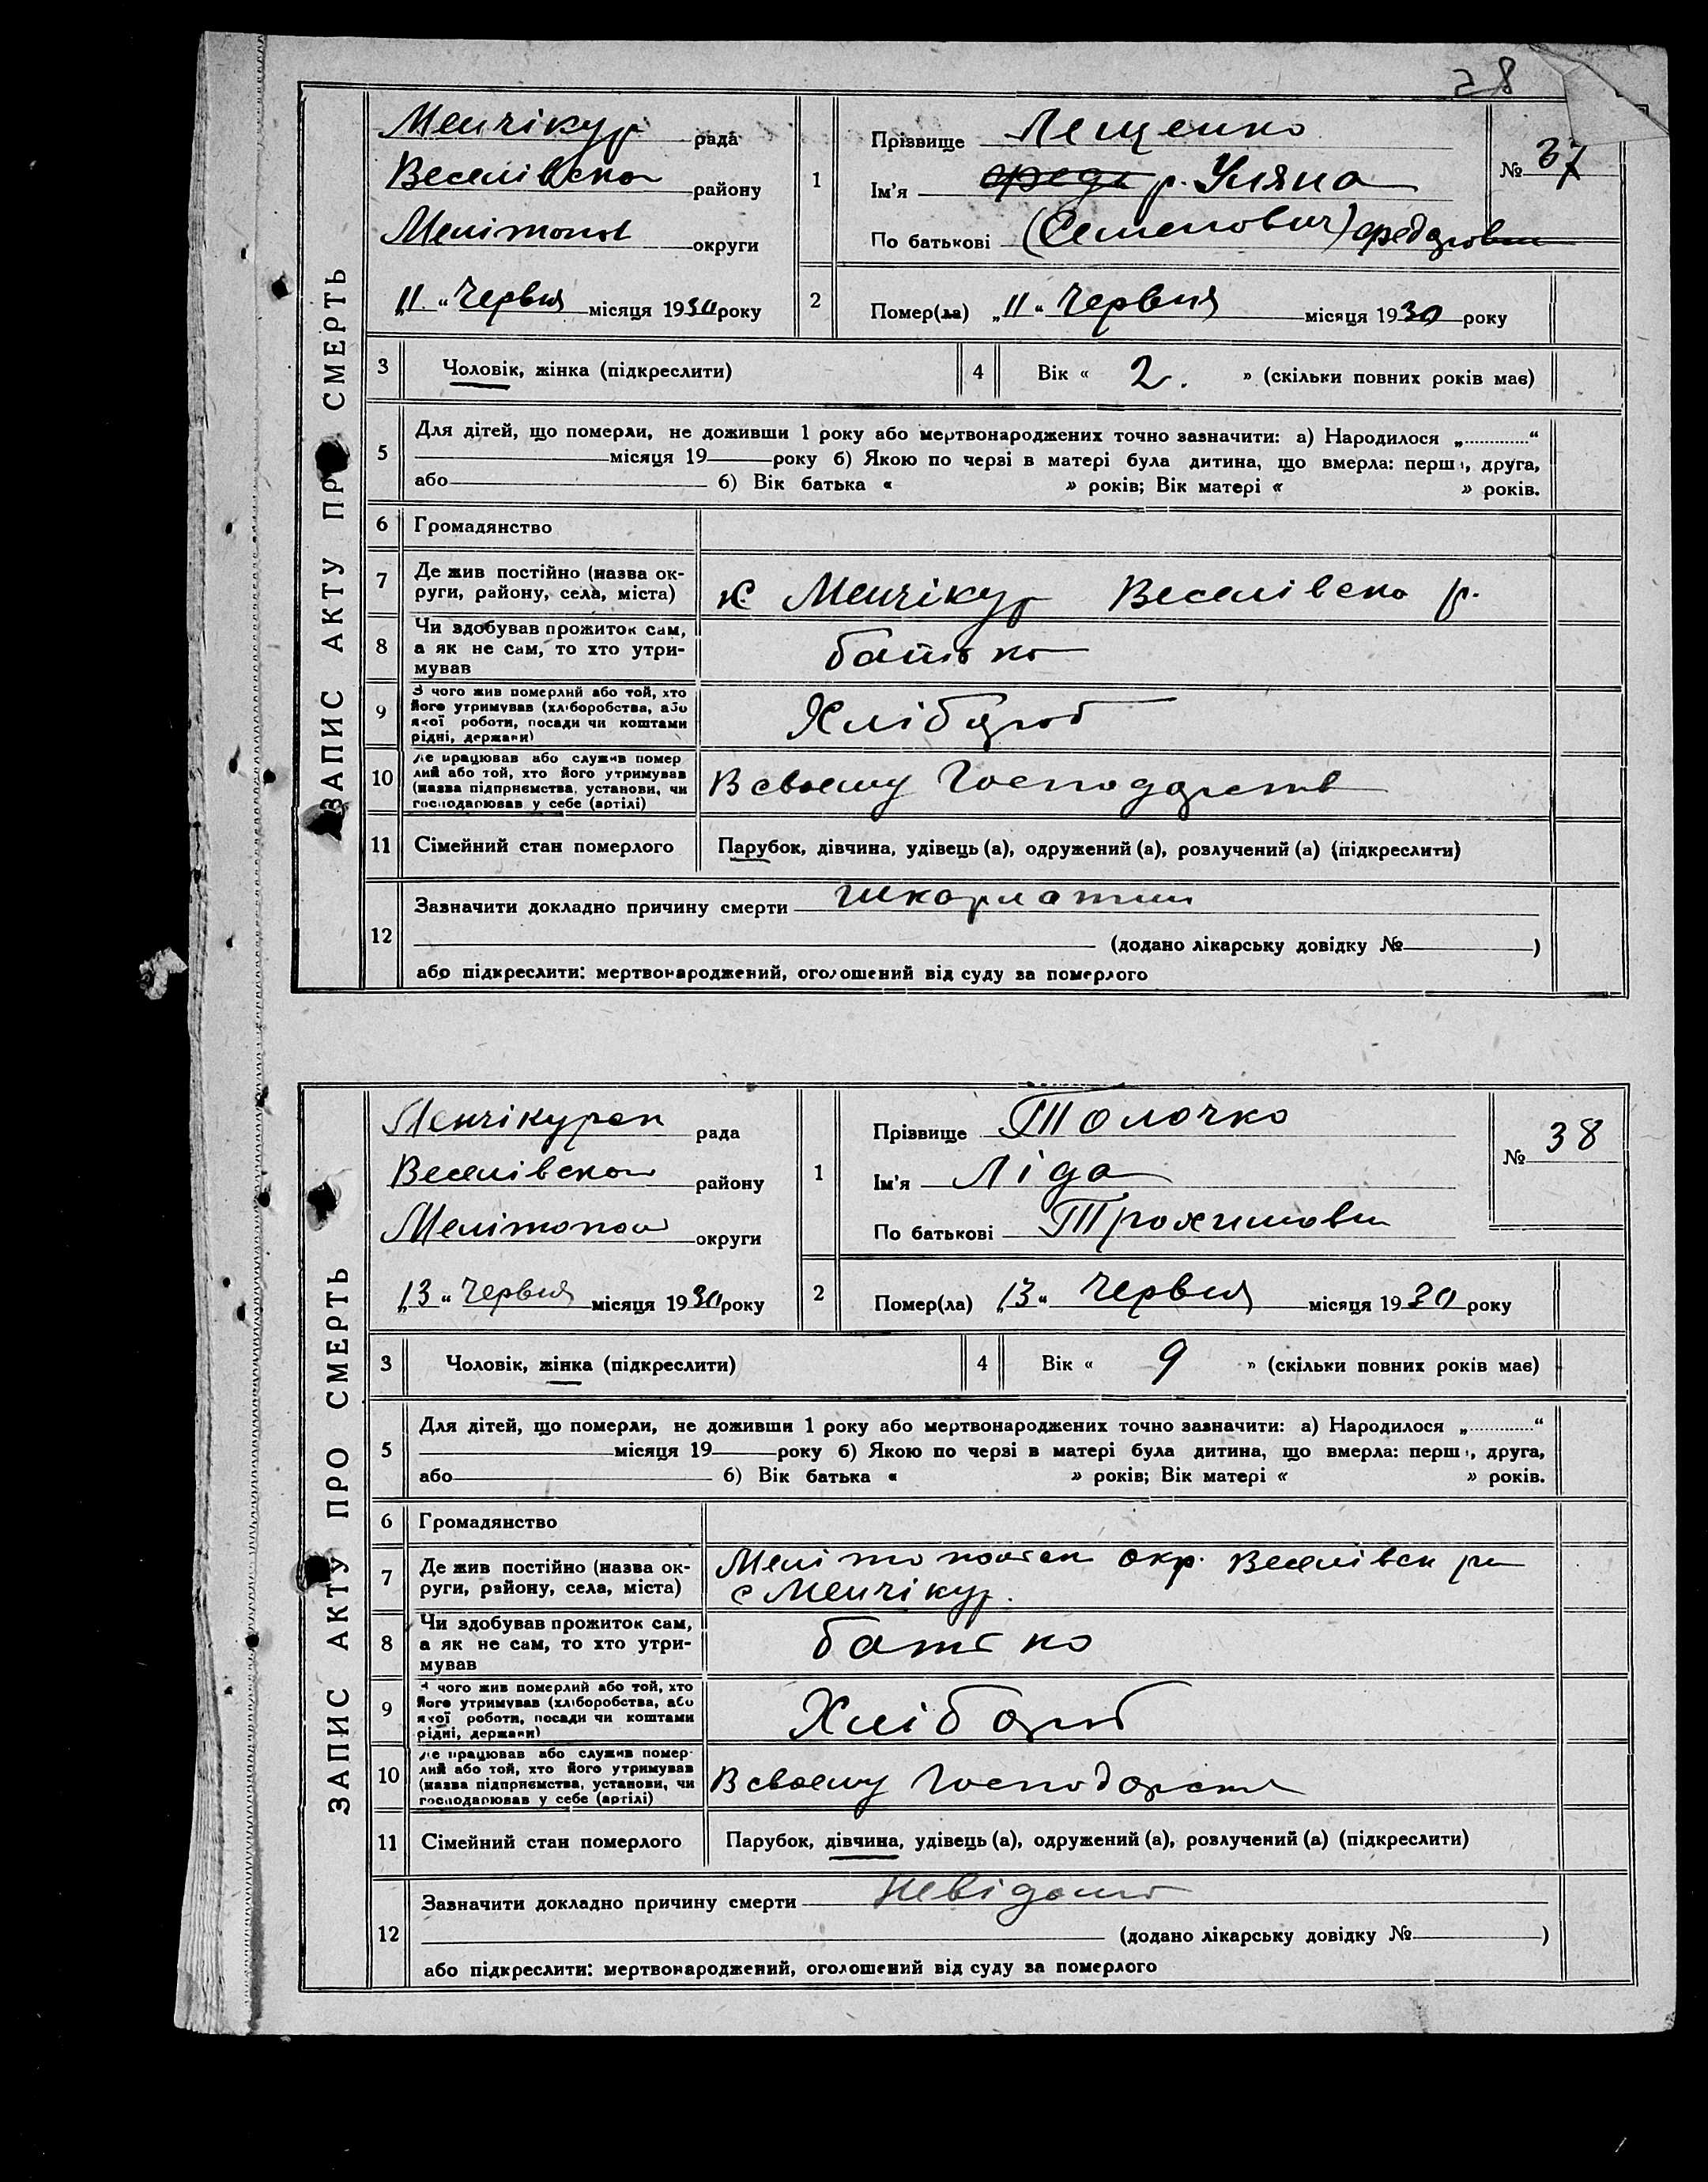 28
ЗАПИС АКТУ ПРО СМЕРТЬ
Менчікур рада
Веселівско району
Мелітопол округи
„11“ Червня місяця 1930 року
1
Прізвище Лещенко
Ім'я р. Уляна
По батькові (Семенович) федоров
№ 37
2 Помер(ла) „11“ Червня місяця 1930 року
3 Чоловік, жінка (підкреслити)
4 Вік « 2. » (скільки повних років має)
5 Для дітей, що померли, не доживши 1 року або мертвонароджених точно зазначити: а) Народилося „............“
місяця 19 року б) Якою по черзі в матері була дитина, що вмерла: перша, друга,
або б) Вік батька « » років; Вік матері « » років.
6 Громадянство
7 Де жив постійно (назва округи, району, села, міста) с Менчікур Веселівско р.
8 Чи здобував прожиток сам, а як не сам, то хто утримував батько
9 З чого жив померлий або той, хто його утримував (хліборобства, або якої роботи, посади чи коштами рідні, держави) Хлібороб
10 Де працював або служив померлий або той, хто його утримував (назва підприємства, установи, чи господарював у себе (артілі) В своему Господарств
11 Сімейний стан померлого Парубок, дівчина, удівець (а), одружений (а), розлучений (а) (підкреслити)
12 Зазначити докладно причину смерти шкарлатин
(додано лікарську довідку № )
або підкреслити: мертвонароджений, оголошений від суду за померлого
ЗАПИС АКТУ ПРО СМЕРТЬ
Менчікурск рада
Веселівско району
Мелітопол округи
„13“ Червня місяця 1930 року
1
Прізвище Толочко
Ім'я Ліда
По батькові Трохимовн
№ 38
2 Помер(ла) „13“ Червня місяця 1930 року
3 Чоловік, жінка (підкреслити)
4 Вік « 9 » (скільки повних років має)
5 Для дітей, що померли, не доживши 1 року або мертвонароджених точно зазначити: а) Народилося „............“
місяця 19 року б) Якою по черзі в матері була дитина, що вмерла: перша, друга,
або б) Вік батька « » років; Вік матері « » років.
6 Громадянство
7 Де жив постійно (назва округи, району, села, міста) Мелітопольск окр. Веселівск рн
с Менчікур.
8 Чи здобував прожиток сам, а як не сам, то хто утримував батько
9 З чого жив померлий або той, хто його утримував (хліборобства, або якої роботи, посади чи коштами рідні, держави) Хлібороб
10 Де працював або служив померлий або той, хто його утримував (назва підприємства, установи, чи господарював у себе (артілі) В своему Господарств
11 Сімейний стан померлого Парубок, дівчина, удівець (а), одружений (а), розлучений (а) (підкреслити)
12 Зазначити докладно причину смерти Невідомо
(додано лікарську довідку № )
або підкреслити: мертвонароджений, оголошений від суду за померлого